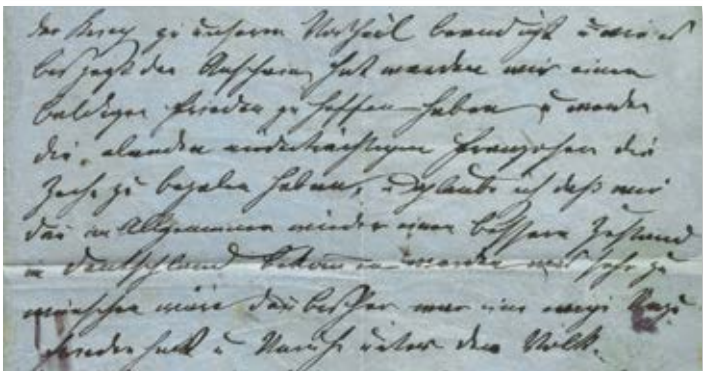 der Krieg zu unserem Vortheil beendigt u wie es
bis jezt den Anschein hat werden wir einen
baldigen Frieden zu hoffen haben u werden
die elenden niederträchtigen Franzosen die
Zeche zu bezalen haben, u glaube ich daß wir
dan im Allgemeinen wieder einen bessern Zustand
in Deutschland bekommen werden was sehr zu
wünschen wäre den bisher war eine ewige Unzu
friedenheit u Unruhe unter dem Volk.